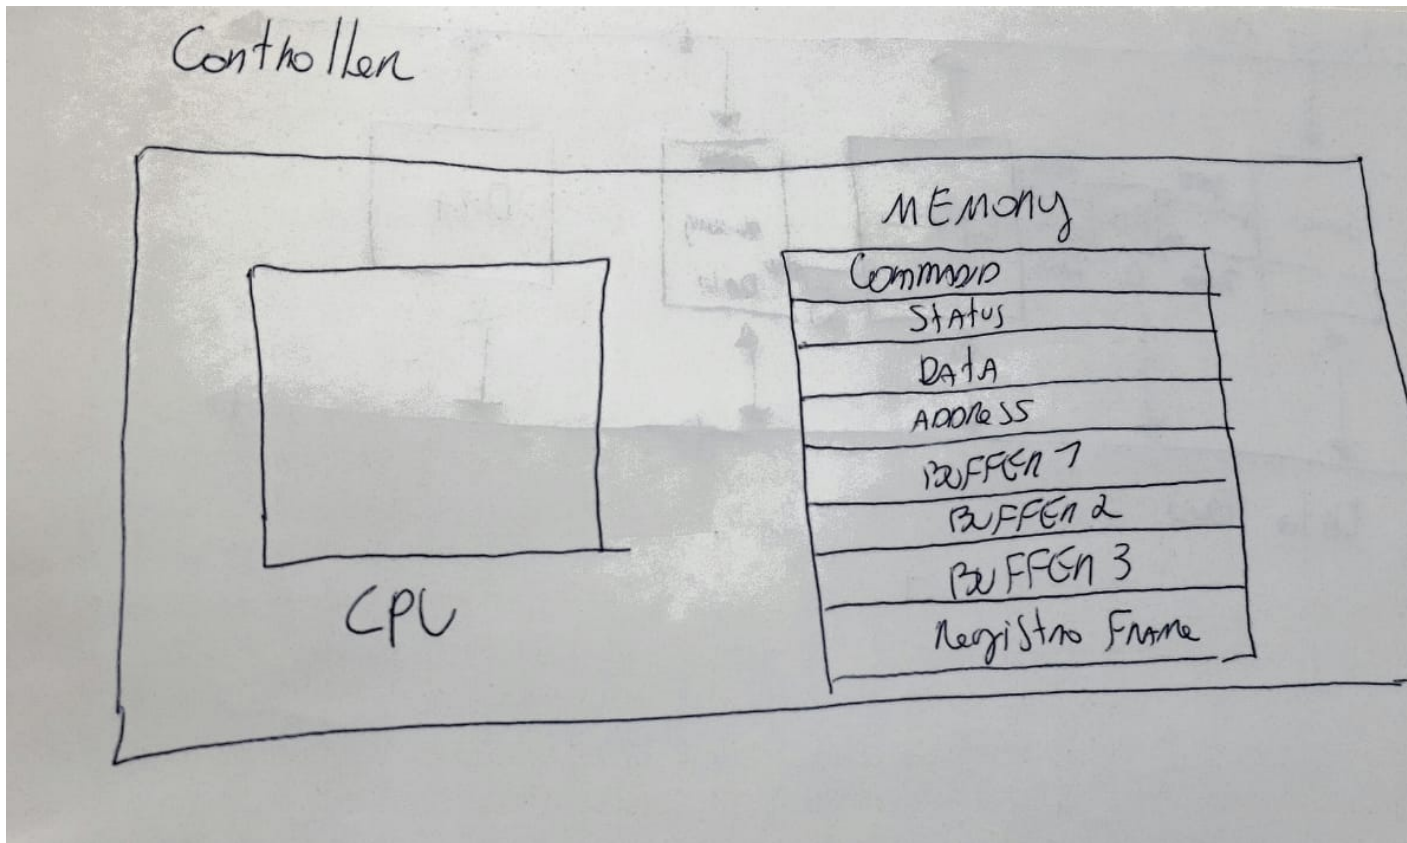 Controller
MEMORY
COMMAND
STATUS
DATA
ADDRESS
BUFFER 1
BUFFER 2
BUFFER 3
Registro Frame
CPU